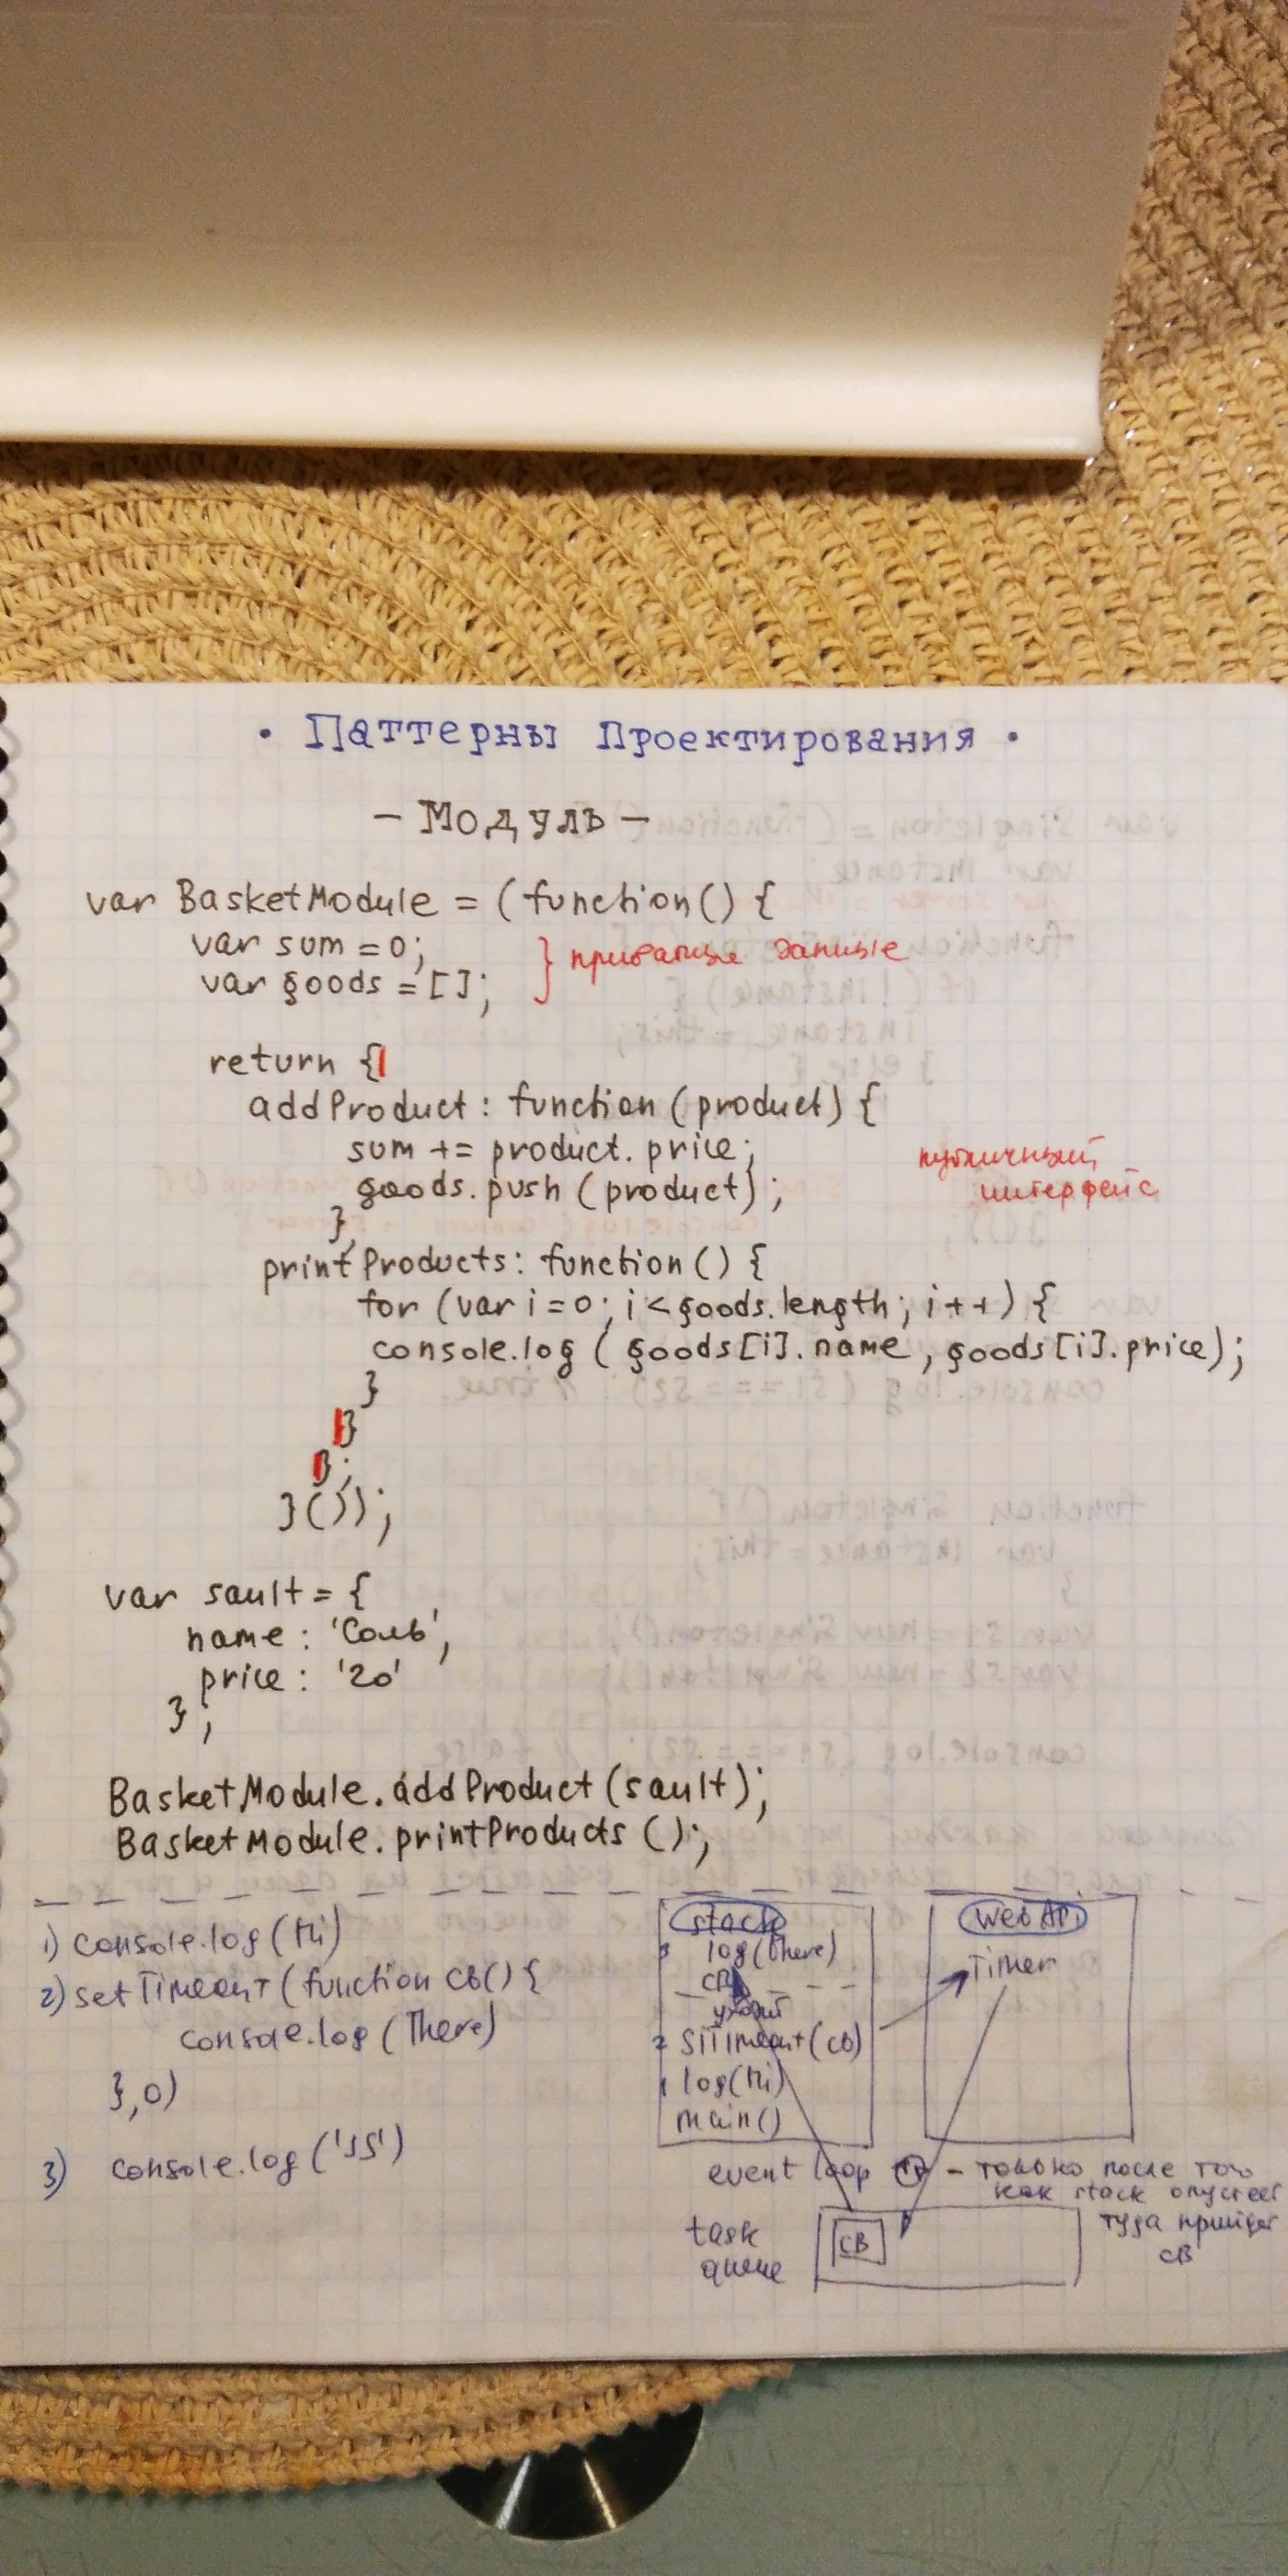 • Паттерны Проектирования •
— Модуль —
var BasketModule = (function() {
var sum = 0;
var goods = [];
} приватные данные
return {
addProduct: function (product) {
sum += product.price;
goods.push (product);
},
публичный
интерфейс
printProducts: function () {
for (var i=0; i<goods.length; i++) {
console.log (goods[i].name, goods[i].price);
}
}
};
}());
var sault = {
name: 'Соль',
price: '20'
};
BasketModule.addProduct(sault);
BasketModule.printProducts ();
1) console.log(Hi)
2) setTimeout(function cb() {
console.log(There)
},0)
3) console.log('JS')
stack
3 log(there)
CB
уходит
2 STimeout(cb)
1 log(Hi)
main()
Web API
Timer
event loop — только после того
как stack опустеет
туда придет
CB
task
queue
CB